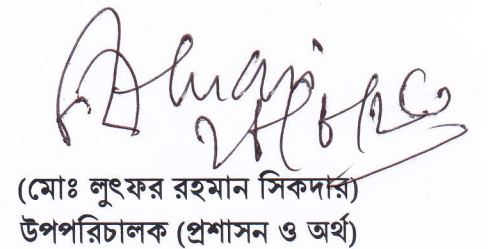 (মোঃ লুৎফর রহমান সিকদার)
উপপরিচালক (প্রশাসন ও অর্থ)